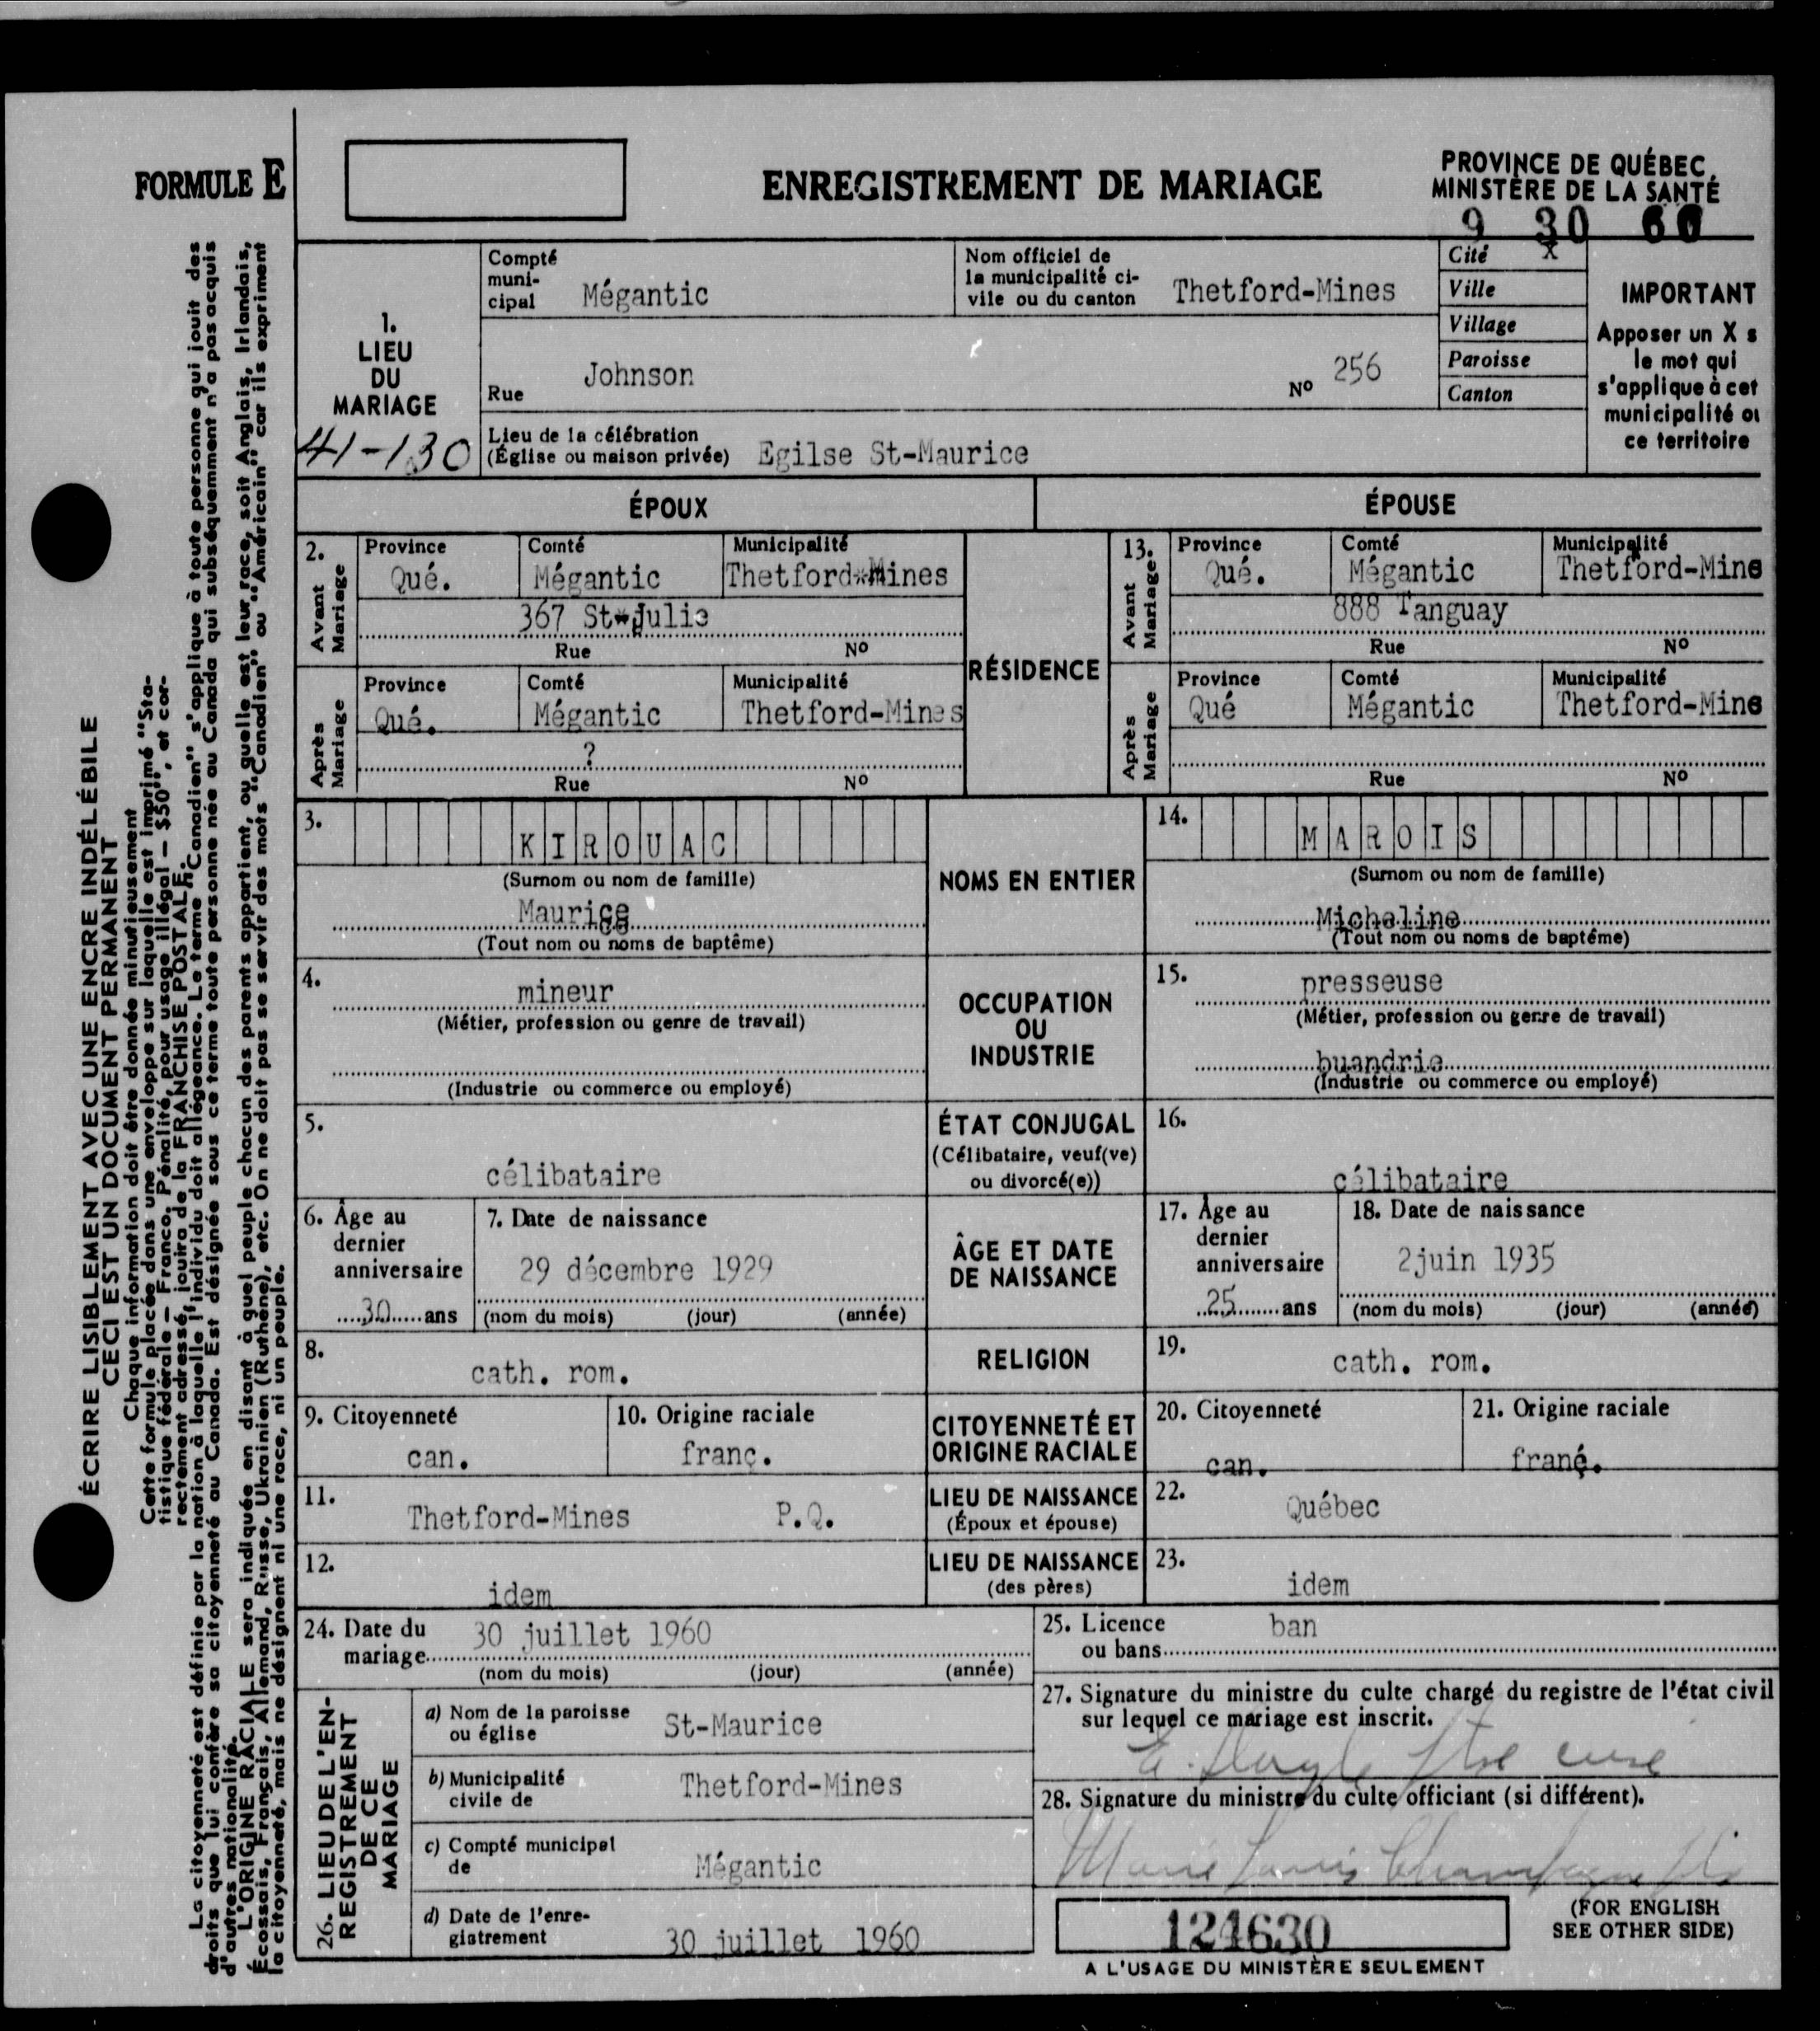 FORMULE E
ENREGISTREMENT DE MARIAGE
PROVINCE DE QUÉBEC
MINISTÈRE DE LA SANTÉ
9 30 60
ÉCRIRE LISIBLEMENT AVEC UNE ENCRE INDÉLÉBILE
CECI EST UN DOCUMENT PERMANENT
Chaque information doit être donnée minutieusement
Cette formule placée dans une enveloppe sur laquelle est imprimé "Sta-
tistique fédérale — Franco, Pénalité, pour usage illégal — $50", et cor-
rectement adressé, jouira de la FRANCHISE POSTALE.
La citoyenneté est définie par la nation à laquelle l'individu doit allégeance. Le terme "Canadien" s'applique à toute personne qui jouit des
droits que lui confère sa citoyenneté au Canada. Est désignée sous ce terme toute personne née au Canada qui subséquemment n'a pas acquis
d'autres nationalité.
L'ORIGINE RACIALE sera indiquée en disant à quel peuple chacun des parents appartient, ou quelle est leur race, soit Anglais, Irlandais,
Écossais, Français, Allemand, Russe, Ukrainien (Ruthène), etc. On ne doit pas se servir des mots "Canadien" ou "Américain" car ils expriment
la citoyenneté, mais ne désignent ni une race, ni un peuple.
1.
LIEU
DU
MARIAGE
41-130
Compté
muni-
cipal Mégantic
Nom officiel de
la municipalité ci-
vile ou du canton Thetford-Mines
Rue Johnson Nº 256
Lieu de la célébration
(Église ou maison privée) Egilse St-Maurice
Cité X
Ville
Village
Paroisse
Canton
IMPORTANT
Apposer un X s
le mot qui
s'applique à cet
municipalité ou
ce territoire
ÉPOUX
ÉPOUSE
RÉSIDENCE
2. Avant Mariage
Province Comté Municipalité
Qué. Mégantic Thetford-Mines
367 St-Julie
Rue Nº
Après Mariage
Province Comté Municipalité
Qué. Mégantic Thetford-Mines
?
Rue Nº
13. Avant Mariage
Province Comté Municipalité
Qué. Mégantic Thetford-Mine
888 Tanguay
Rue Nº
Après Mariage
Province Comté Municipalité
Qué Mégantic Thetford-Mine
Rue Nº
NOMS EN ENTIER
3. KIROUAC
(Surnom ou nom de famille)
Maurice
(Tout nom ou noms de baptême)
14. MAROIS
(Surnom ou nom de famille)
Micheline
(Tout nom ou noms de baptême)
OCCUPATION
OU
INDUSTRIE
4. mineur
(Métier, profession ou genre de travail)
(Industrie ou commerce ou employé)
15. presseuse
(Métier, profession ou genre de travail)
buandrie
(Industrie ou commerce ou employé)
ÉTAT CONJUGAL
(Célibataire, veuf(ve)
ou divorcé(e))
5. célibataire
16. célibataire
ÂGE ET DATE
DE NAISSANCE
6. Âge au
dernier
anniversaire
30 ans
7. Date de naissance
29 décembre 1929
(nom du mois) (jour) (année)
17. Age au
dernier
anniversaire
25 ans
18. Date de naissance
2juin 1935
(nom du mois) (jour) (année)
RELIGION
8. cath. rom.
19. cath. rom.
CITOYENNETÉ ET
ORIGINE RACIALE
9. Citoyenneté
can.
10. Origine raciale
franç.
20. Citoyenneté
can.
21. Origine raciale
franç.
LIEU DE NAISSANCE
(Époux et épouse)
11. Thetford-Mines P.Q.
22. Québec
LIEU DE NAISSANCE
(des pères)
12. idem
23. idem
24. Date du
mariage 30 juillet 1960
(nom du mois) (jour) (année)
25. Licence
ou bans ban
26. LIEU DE L'EN-
REGISTREMENT
DE CE
MARIAGE
a) Nom de la paroisse
ou église St-Maurice
b) Municipalité
civile de Thetford-Mines
c) Compté municipal
de Mégantic
d) Date de l'enre-
gistrement 30 juillet 1960
27. Signature du ministre du culte chargé du registre de l'état civil
sur lequel ce mariage est inscrit.
ptre curé
28. Signature du ministre du culte officiant (si différent).
Louis Champagne
124630
A L'USAGE DU MINISTÈRE SEULEMENT
(FOR ENGLISH
SEE OTHER SIDE)